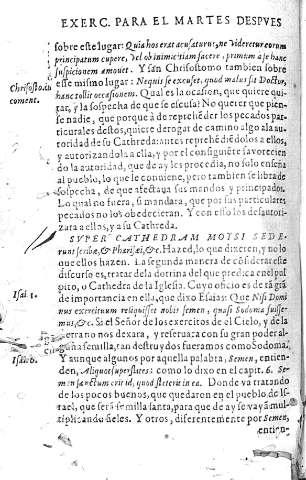 EXERC. PARA EL MARTES DESPVES
sobre este lugar: Quia hos erat acusaturus, ne videretur eorum
principatum cupere, vel ob inimicitiam facere, primum a se hanc
suspicionem amouet. Y san Chrisostomo tambien sobre
Chrisosto. in
coment.
este mismo lugar: Nequis se excuset, quod malus sit Doctor,
hanc tollit occasionem. Qual es la ocasion, que quiere qui-
tar, y la sospecha de que se escusa? No querer que pien-
se nadie, que porque à de reprehēder los pecados par-
ticulares destos, quiere derogar de camino algo a la au-
toridad de su Cathreda: antes reprehēdiēdolos a ellos,
y autorizandola a ella, y por el consiguiēte favorecien
do la autoridad, que de ay les procedia, no solo enseña
al pueblo, lo que le conviene, pero tambien se libra de
sospecha, de que afectaua sus mandos y principados.
Lo qual no fuera, si mandara, que por sus particulares
pecados no los obedecieran. Y con esso los desautori-
zara a ellos, y a su Cathreda.
SVPER CATHEDRAM MOYSI SEDE-
runt scribæ, & Pharisæi, &c. Hazed, lo que dixeren, y no lo
que ellos hazen. La segunda manera de cōsiderar este
discurso es, tratar de la dotrina del que predica en el pul
pito, o Cathedra de la Iglesia. Cuyo oficio es de tā grā
Isai. 1.
de importancia en ella, que dixo Esaias: Que Nisi Domi
nus exercituum reliquisset nobis semen, quasi Sodoma fuisse-
mus, &c. Si el Señor de los exercitos de el Cielo, y de la
tierra no nos dexara, y reseruara con su gran poder al-
guña semilla, tan destruydos fueramos como Sodoma.
Isai. 6.
Y aunque algunos por aquella palabra, Semen, entien-
den, Aliquot superstites: como lo dixo en el capit. 6. Se-
men sanctum erit id, quod steterit in ea. Donde va tratando
de los pocos buenos, que quedaren en el pueblo de Is-
rael, que serā semilla santa, para que de ay se vayā mul-
tiplicando fieles. Y otros, diferentemente por Semen,
entien-